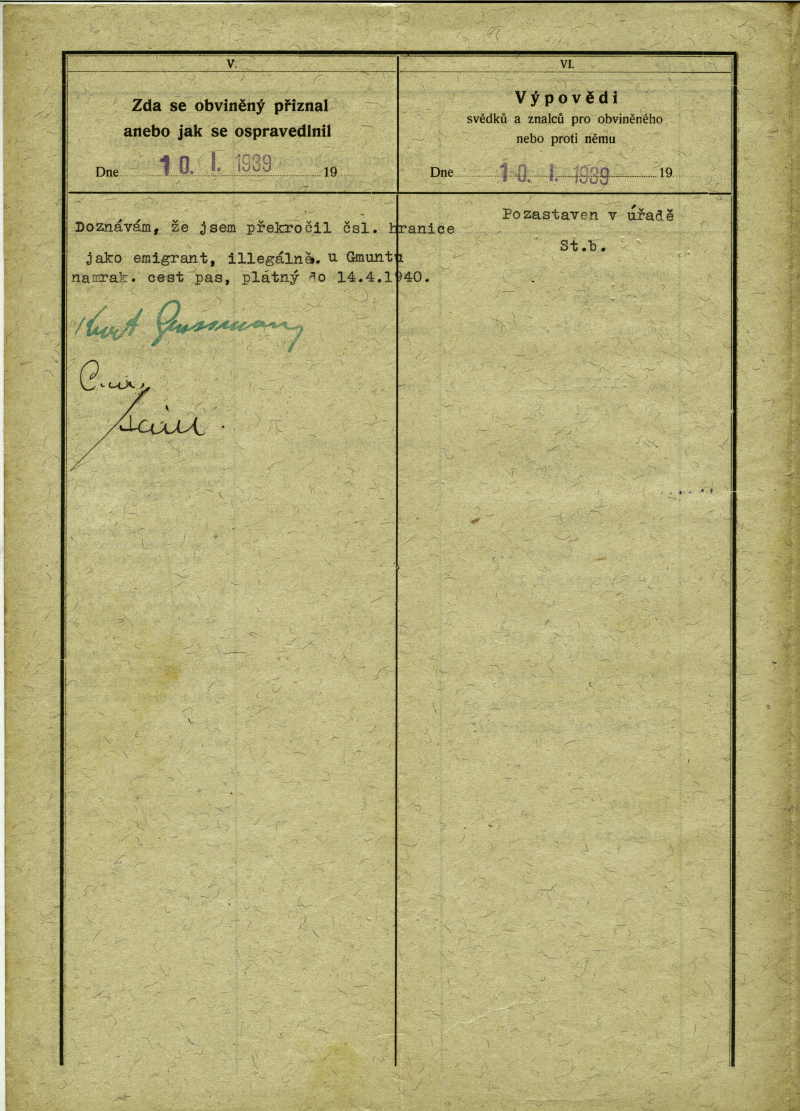 V.
Zda se obviněný přiznal
anebo jak se ospravedlnil
Dne 10. I. 1939 19
Doznávám, že jsem překročil čsl. hranice
jako emigrant, illegálně. u Gmuntu
namrak. cest pas, plátný do 14.4.1940.
Kurt
VI.
Výpovědi
svědků a znalců pro obviněného
nebo proti němu
Dne 10. I. 1939 19
Pozastaven v úřadě
St.b.